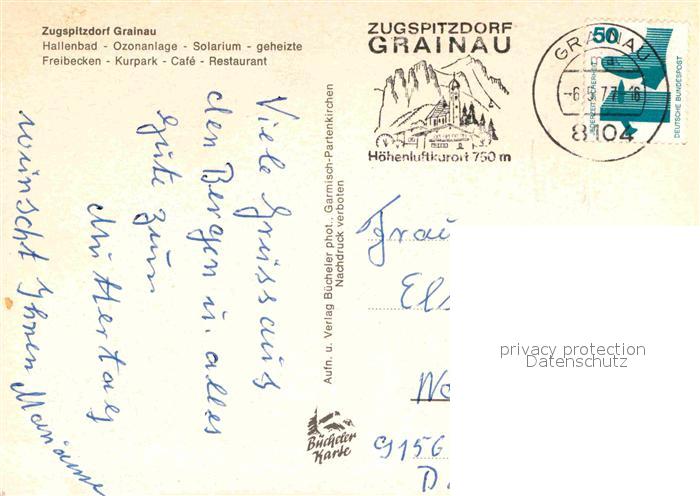 Zugspitzdorf Grainau
Hallenbad - Ozonanlage - Solarium - geheizte
Freibecken - Kurpark - Café - Restaurant
Viele Grüss aus
den Bergen u. alles
Gute zum
Muttertag
wünscht Ihnen Marianne
Aufn. u. Verlag Bücheler phot., Garmisch-Partenkirchen
Nachdruck verboten
Bücheler
Karte
ZUGSPITZDORF
GRAINAU
Höhenluftkurort 750 m
GRAINAU
-6.5.77-16
8104
50
JEDERZEIT SICHERHEIT
DEUTSCHE BUNDESPOST
Frau
El
9156
D.
privacy protection
Datenschutz